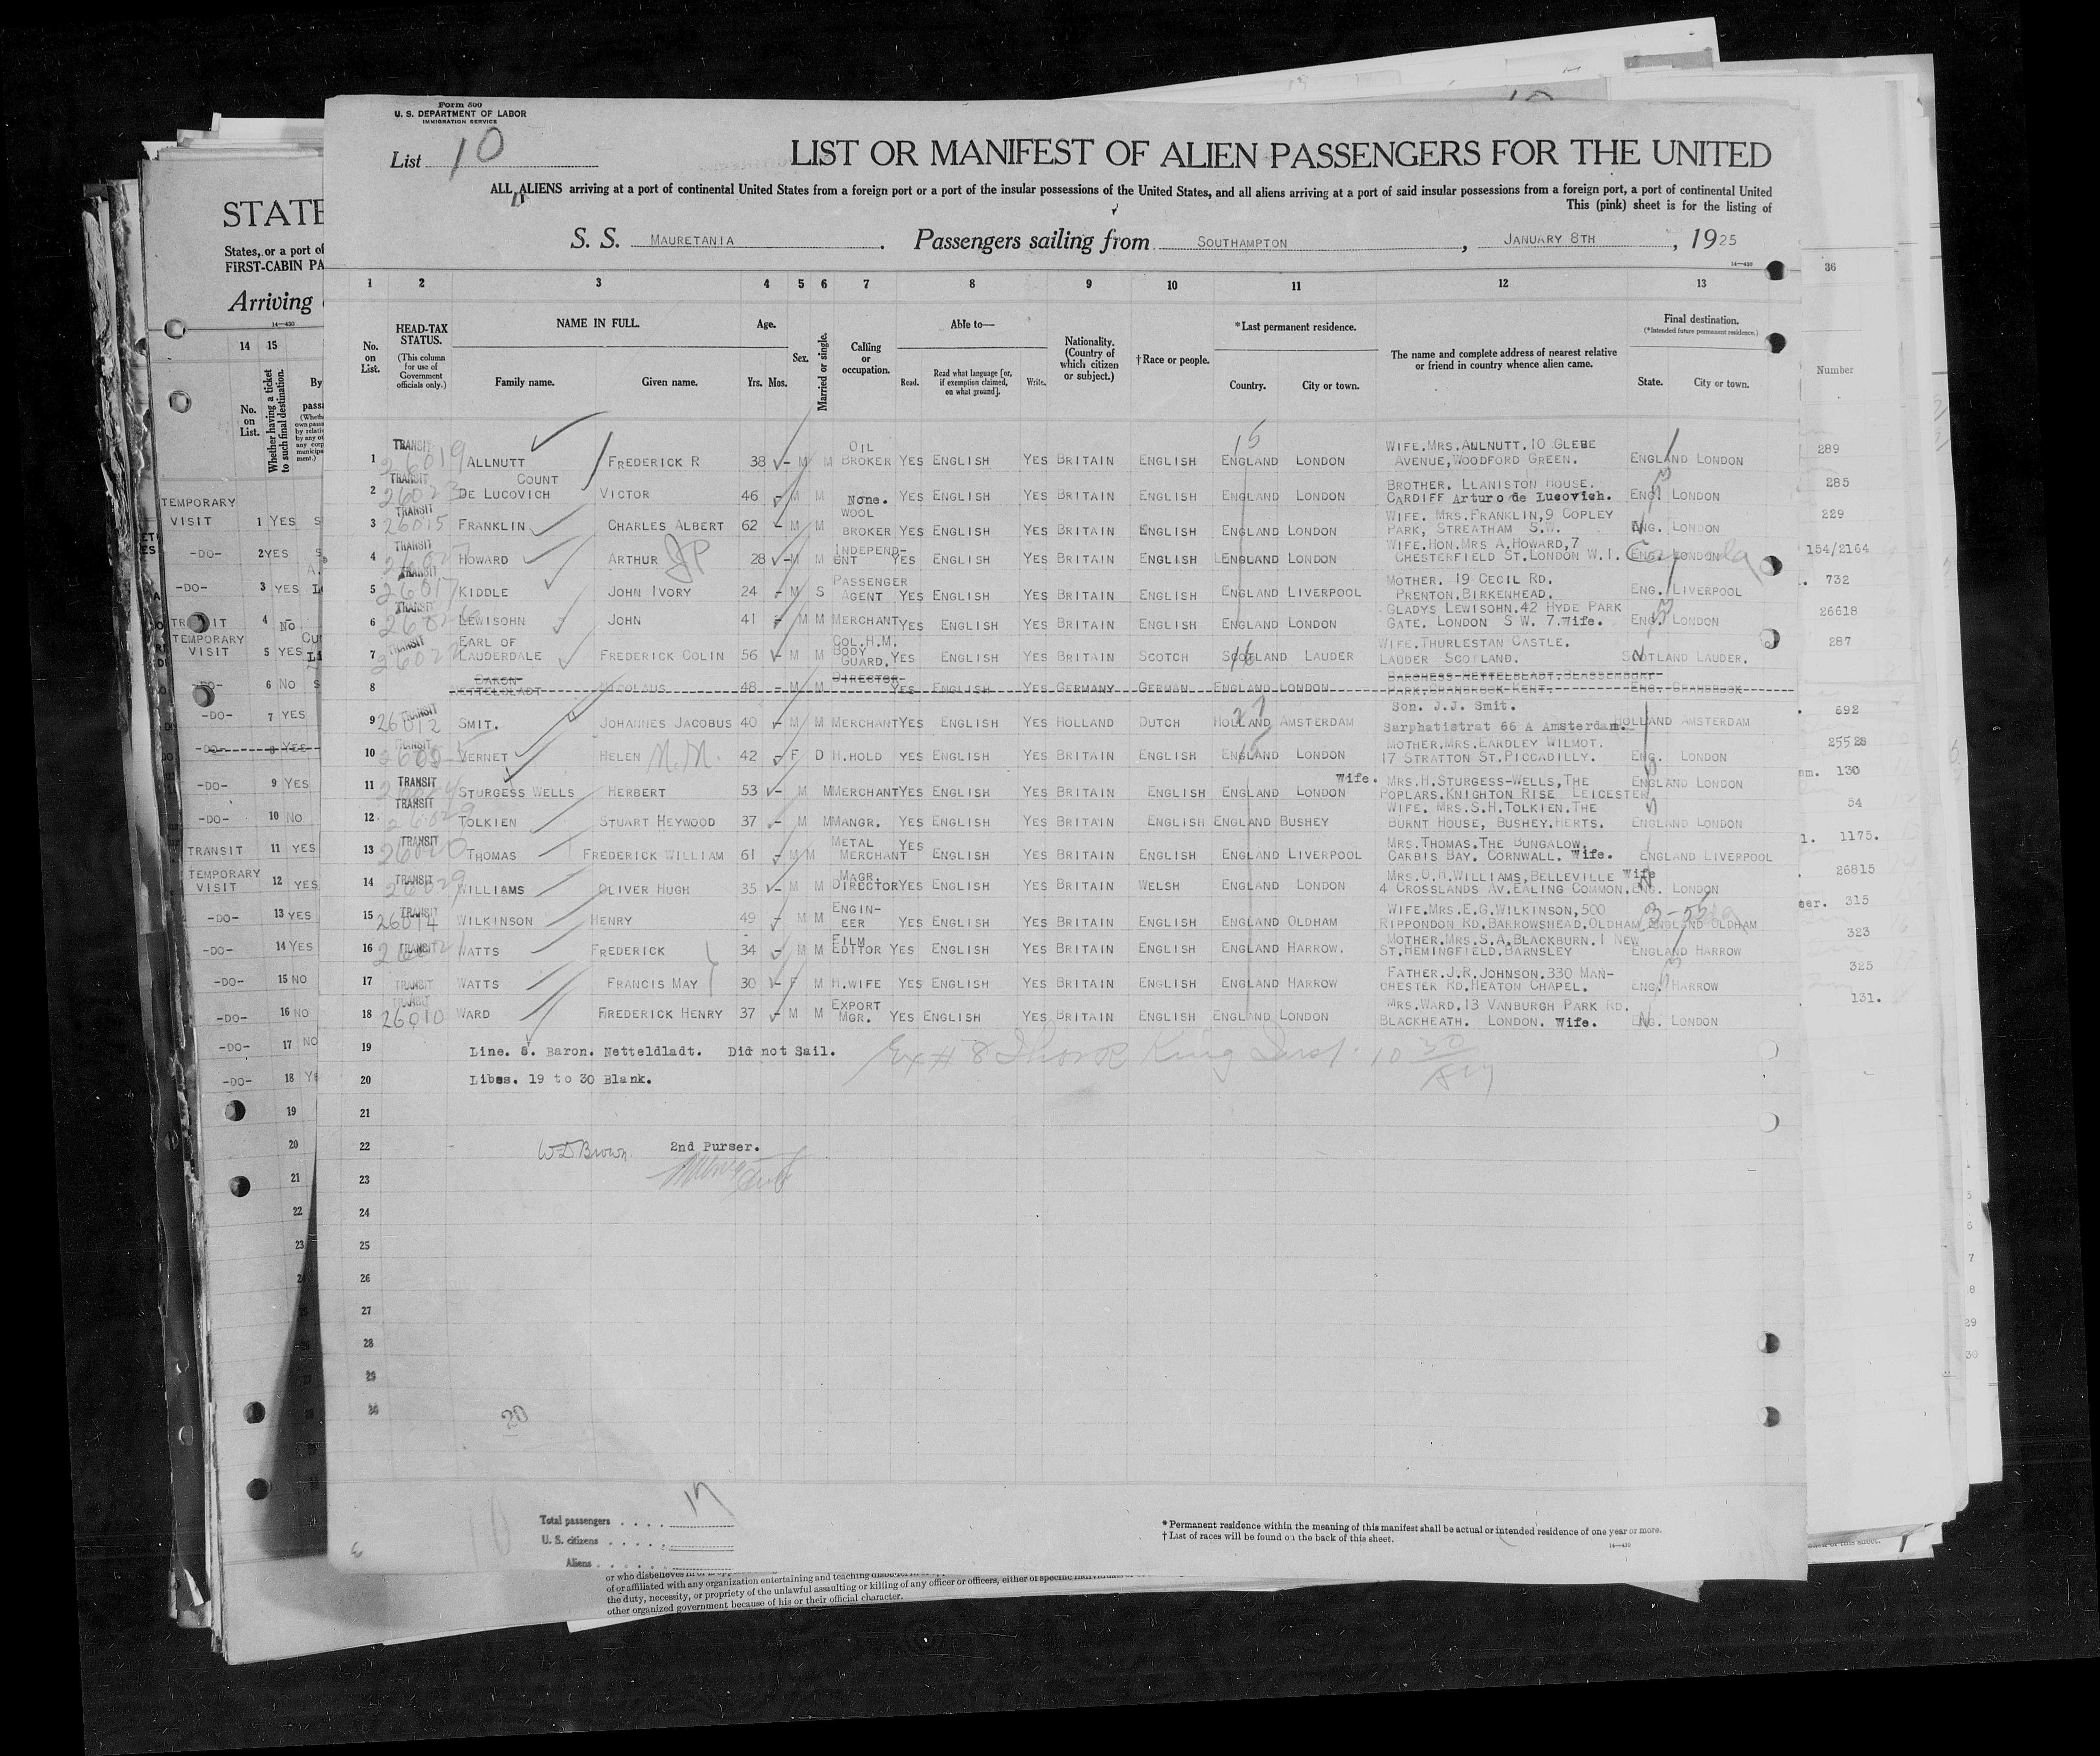 Form 500
U. S. DEPARTMENT OF LABOR
IMMIGRATION SERVICE
List 10
LIST OR MANIFEST OF ALIEN PASSENGERS FOR THE UNITED
ALL ALIENS arriving at a port of continental United States from a foreign port or a port of the insular possessions of the United States, and all aliens arriving at a port of said insular possessions from a foreign port, a port of continental United
This (pink) sheet is for the listing of
S. S. MAURETANIA. Passengers sailing from SOUTHAMPTON, JANUARY 8TH, 1925
14—430
1 2 3 4 5 6 7 8 9 10 11 12 13
No. on List.
HEAD-TAX STATUS.
(This column for use of Government officials only.)
NAME IN FULL.
Family name. Given name.
Age.
Yrs. Mos.
Sex.
Married or single.
Calling or occupation.
Able to—
Read. Read what language [or, if exemption claimed, on what ground]. Write.
Nationality. (Country of which citizen or subject.)
†Race or people.
*Last permanent residence.
Country. City or town.
The name and complete address of nearest relative or friend in country whence alien came.
Final destination.
(*Intended future permanent residence.)
State. City or town.
1 TRANSIT 26019 ALLNUTT FREDERICK R 38 M M OIL BROKER YES ENGLISH YES BRITAIN ENGLISH ENGLAND LONDON WIFE.MRS.ALLNUTT.10 GLEBE AVENUE,WOODFORD GREEN. ENGLAND LONDON
2 TRANSIT COUNT DE LUCOVICH VICTOR 46 M M None. YES ENGLISH YES BRITAIN ENGLISH ENGLAND LONDON BROTHER. LLANISTON HOUSE. CARDIFF Arturo de Lucovich. ENG. LONDON
3 TRANSIT 26015 FRANKLIN CHARLES ALBERT 62 M M WOOL BROKER YES ENGLISH YES BRITAIN ENGLISH ENGLAND LONDON WIFE. MRS.FRANKLIN,9 COPLEY PARK, STREATHAM S.W. ENG. LONDON
4 TRANSIT HOWARD ARTHUR JP 28 M M INDEPEND-ENT YES ENGLISH YES BRITAIN ENGLISH ENGLAND LONDON WIFE.HON.MRS A.HOWARD,7 CHESTERFIELD ST.LONDON W.I. ENG. LONDON Canada
5 TRANSIT 26017 KIDDLE JOHN IVORY 24 M S PASSENGER AGENT YES ENGLISH YES BRITAIN ENGLISH ENGLAND LIVERPOOL MOTHER. 19 CECIL RD. PRENTON,BIRKENHEAD. ENG. LIVERPOOL
6 TRANSIT LEWISOHN JOHN 41 M M MERCHANT YES ENGLISH YES BRITAIN ENGLISH ENGLAND LONDON GLADYS LEWISOHN.42 HYDE PARK GATE. LONDON S W. 7.Wife. ENG. LONDON
7 TRANSIT EARL OF LAUDERDALE FREDERICK COLIN 56 M M COL.H.M. BODY GUARD. YES ENGLISH YES BRITAIN SCOTCH SCOTLAND LAUDER WIFE.THURLESTAN CASTLE. LAUDER SCOTLAND. SCOTLAND LAUDER.
8 BARON NETTELDLADT NICOLAUS 48 M M DIRECTOR YES ENGLISH YES GERMANY GERMAN ENGLAND LONDON
9 TRANSIT 26012 SMIT. JOHANNES JACOBUS 40 M M MERCHANT YES ENGLISH YES HOLLAND DUTCH HOLLAND AMSTERDAM Son. J.J. Smit. Sarphatistrat 66 A Amsterdam. HOLLAND AMSTERDAM
10 TRANSIT VERNET HELEN N.M. 42 F D H.HOLD YES ENGLISH YES BRITAIN ENGLISH ENGLAND LONDON MOTHER.MRS.EARDLEY WILMOT. 17 STRATTON ST.PICCADILLY. ENG. LONDON
11 TRANSIT STURGESS WELLS HERBERT 53 M M MERCHANT YES ENGLISH YES BRITAIN ENGLISH ENGLAND LONDON Wife. MRS.H.STURGESS-WELLS,THE POPLARS.KNIGHTON RISE LEICESTER ENGLAND LONDON
12 TRANSIT TOLKIEN STUART HEYWOOD 37 M M MANGR. YES ENGLISH YES BRITAIN ENGLISH ENGLAND BUSHEY WIFE. MRS.S.H.TOLKIEN.THE BURNT HOUSE, BUSHEY.HERTS. ENGLAND LONDON
13 TRANSIT THOMAS FREDERICK WILLIAM 61 M M METAL MERCHANT YES ENGLISH YES BRITAIN ENGLISH ENGLAND LIVERPOOL MRS.THOMAS.THE BUNGALOW. CARBIS BAY. CORNWALL. Wife. ENGLAND LIVERPOOL
14 TRANSIT WILLIAMS OLIVER HUGH 35 M M MAGR. DIRECTOR YES ENGLISH YES BRITAIN WELSH ENGLAND LONDON MRS.O.H.WILLIAMS,BELLEVILLE Wife 4 CROSSLANDS AV.EALING COMMON. ENG. LONDON
15 TRANSIT 26014 WILKINSON HENRY 49 M M ENGIN-EER YES ENGLISH YES BRITAIN ENGLISH ENGLAND OLDHAM WIFE.MRS.E.G.WILKINSON,500 RIPPONDON RD.BARROWSHEAD.OLDHAM ENGLAND OLDHAM
16 TRANSIT WATTS FREDERICK 34 M M FILM EDITOR YES ENGLISH YES BRITAIN ENGLISH ENGLAND HARROW. MOTHER.MRS.S.A.BLACKBURN.1 NEW ST.HEMINGFIELD.BARNSLEY ENGLAND HARROW
17 TRANSIT WATTS FRANCIS MAY 30 F M H.WIFE YES ENGLISH YES BRITAIN ENGLISH ENGLAND HARROW FATHER.J.R.JOHNSON.330 MAN-CHESTER RD.HEATON CHAPEL. ENG. HARROW
18 TRANSIT 26010 WARD FREDERICK HENRY 37 M M EXPORT MGR. YES ENGLISH YES BRITAIN ENGLISH ENGLAND LONDON MRS.WARD.13 VANBURGH PARK RD. BLACKHEATH. LONDON. Wife. ENG. LONDON
19 Line. 8. Baron. Netteldladt. Did not Sail.
20 Libes. 19 to 30 Blank.
21
22 W D Brown. 2nd Purser.
23
24
25
26
27
28
29
30
20
Total passengers 17
U. S. citizens
Aliens
* Permanent residence within the meaning of this manifest shall be actual or intended residence of one year or more.
† List of races will be found on the back of this sheet.
14—430
STATE
States, or a port of
FIRST-CABIN PA
Arriving
14—430
14 15
No. on List.
Whether having a ticket to such final destination.
By
TEMPORARY VISIT 1 YES
-DO- 2 YES
-DO- 3 YES
TRANSIT 4 No
TEMPORARY VISIT 5 YES
-DO- 6 NO
-DO- 7 YES
-DO- 8 YES
-DO- 9 YES
-DO- 10 NO
TRANSIT 11 YES
TEMPORARY VISIT 12 YES
-DO- 13 YES
-DO- 14 YES
-DO- 15 NO
-DO- 16 NO
-DO- 17 NO
-DO- 18
19
20
21
22
23
36
Number
289
285
229
154/2164
732
26618
287
692
25528
130
54
1175.
26815
315
323
325
131.
of or affiliated with any organization entertaining and teaching
the duty, necessity, or propriety of the unlawful assaulting or killing of any officer or officers, either of specific
other organized government because of his or their official character.